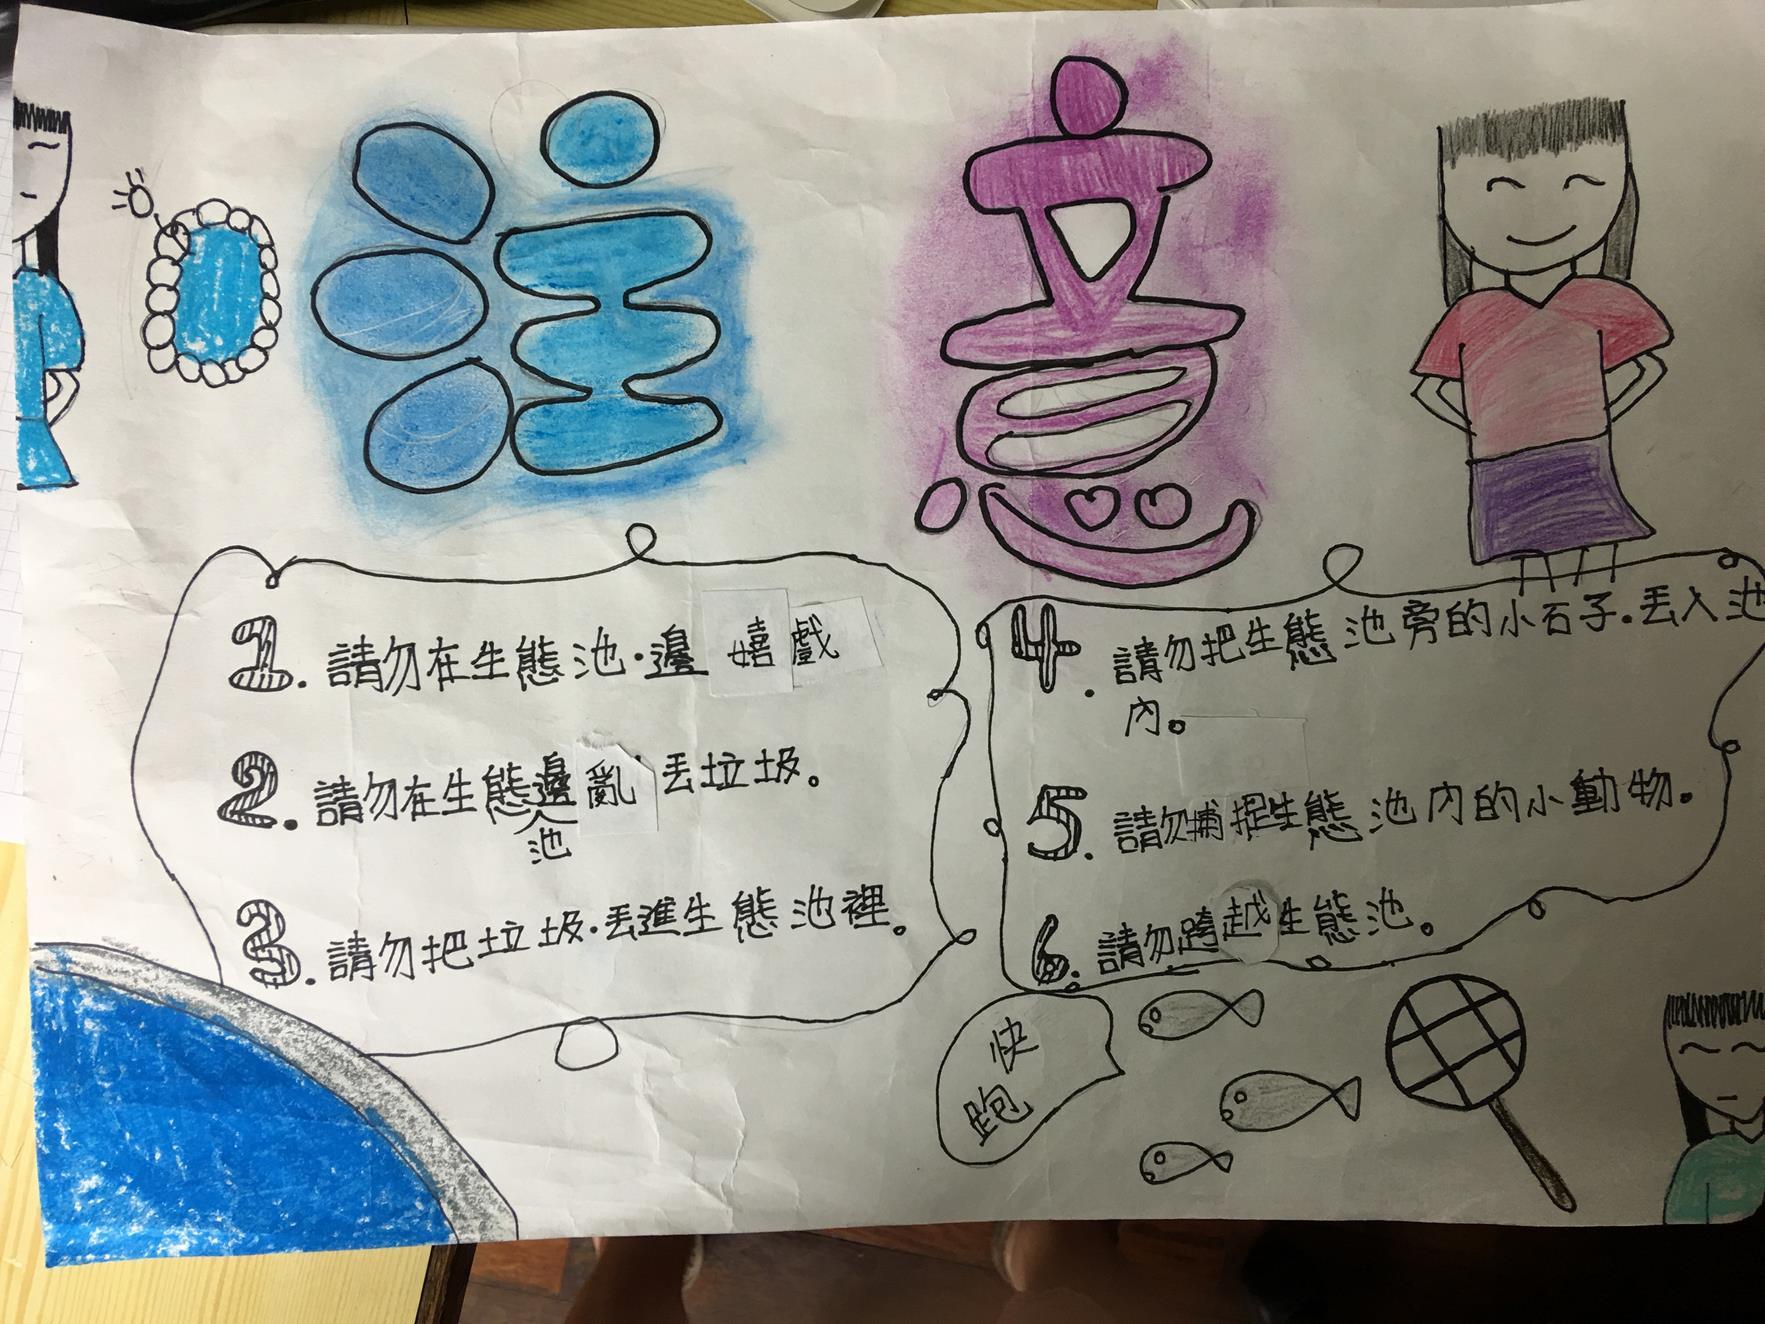 注意
1. 請勿在生態池·邊嬉戲
2. 請勿在生態池邊亂丟垃圾。
3. 請勿把垃圾·丟進生態池裡。
4. 請勿把生態池旁的小石子·丟入池
內。
5. 請勿捕捉生態池內的小動物。
6. 請勿跨越生態池。
快
跑